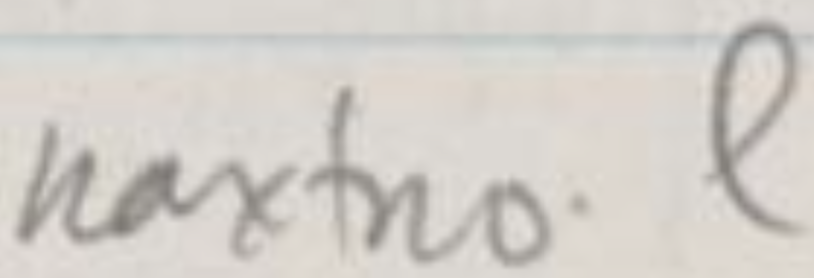 naxtno. l